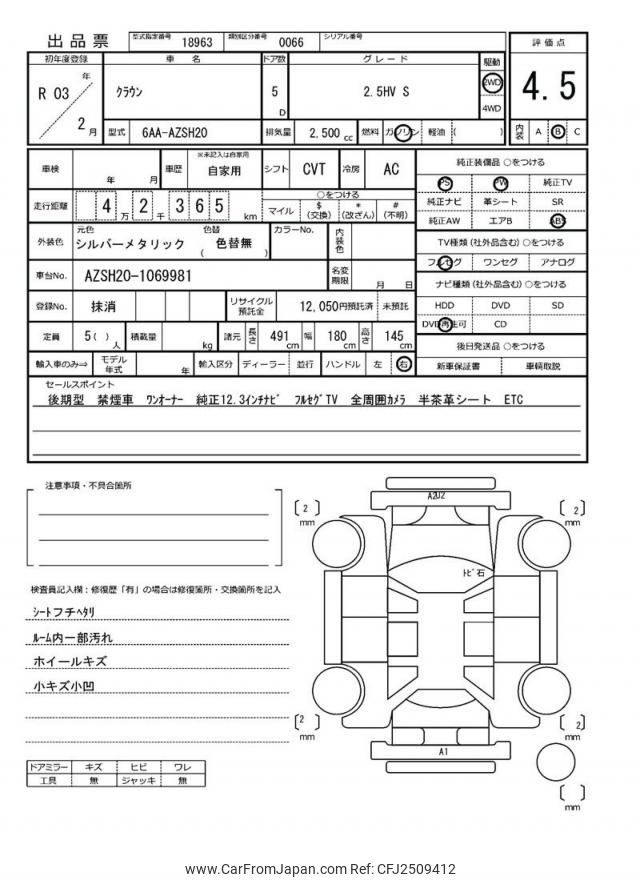 出品票 型式指定番号 18963 類別区分番号 0066 シリアル番号
評価点
4.5
内装 A B C
初年度登録 車名 ドア数 グレード 駆動
R 03 年 2 月 ｸﾗｳﾝ 5 D 2.5HV S 2WD 4WD
型式 6AA-AZSH20 排気量 2,500 cc 燃料 ガソリン 軽油 ( )
車検 年 月 車歴 ※未記入は自家用 自家用 シフト CVT 冷房 AC
走行距離 4 万 2 千 3 6 5 km ○をつける
マイル $ (交換) * (改ざん) # (不明)
外装色 元色 シルバーメタリック 色替 ( 色替無 ) カラーNo. 内装色
車台No. AZSH20-1069981 名変期限 月 日
登録No. 抹消 リサイクル預託金 12,050円預託済 未預託
定員 5 ( ) 人 積載量 kg 諸元 長さ 491 cm 幅 180 cm 高さ 145 cm
輸入車のみ⇒ モデル年式 年 輸入区分 ディーラー 並行 ハンドル 左 右
純正装備品 ○をつける
PS PW 純正TV
純正ナビ 革シート SR
純正AW エアB ABS
TV種類 (社外品含む) ○をつける
フルセグ ワンセグ アナログ
ナビ種類 (社外品含む) ○をつける
HDD DVD SD
DVD再生可 CD
後日発送品 ○をつける
新車保証書 車輌取説
セールスポイント
後期型 禁煙車 ﾜﾝｵｰﾅｰ 純正12.3ｲﾝﾁﾅﾋﾞ ﾌﾙｾｸﾞTV 全周囲ｶﾒﾗ 半茶革シート ETC
注意事項・不具合箇所
検査員記入欄：修復歴「有」の場合は修復箇所・交換箇所を記入
ｼｰﾄフチﾍﾀﾘ
ﾙｰﾑ内一部汚れ
ホイールキズ
小キズ小凹
ドアミラー キズ ヒビ ワレ
工具 無 ジャッキ 無
A2U2
[ 2 ] mm
[ 2 ] mm
ﾄﾋﾞ石
[ 2 ] mm
[ 2 ] mm
A1
[ ] mm
www.CarFromJapan.com Ref: CFJ2509412